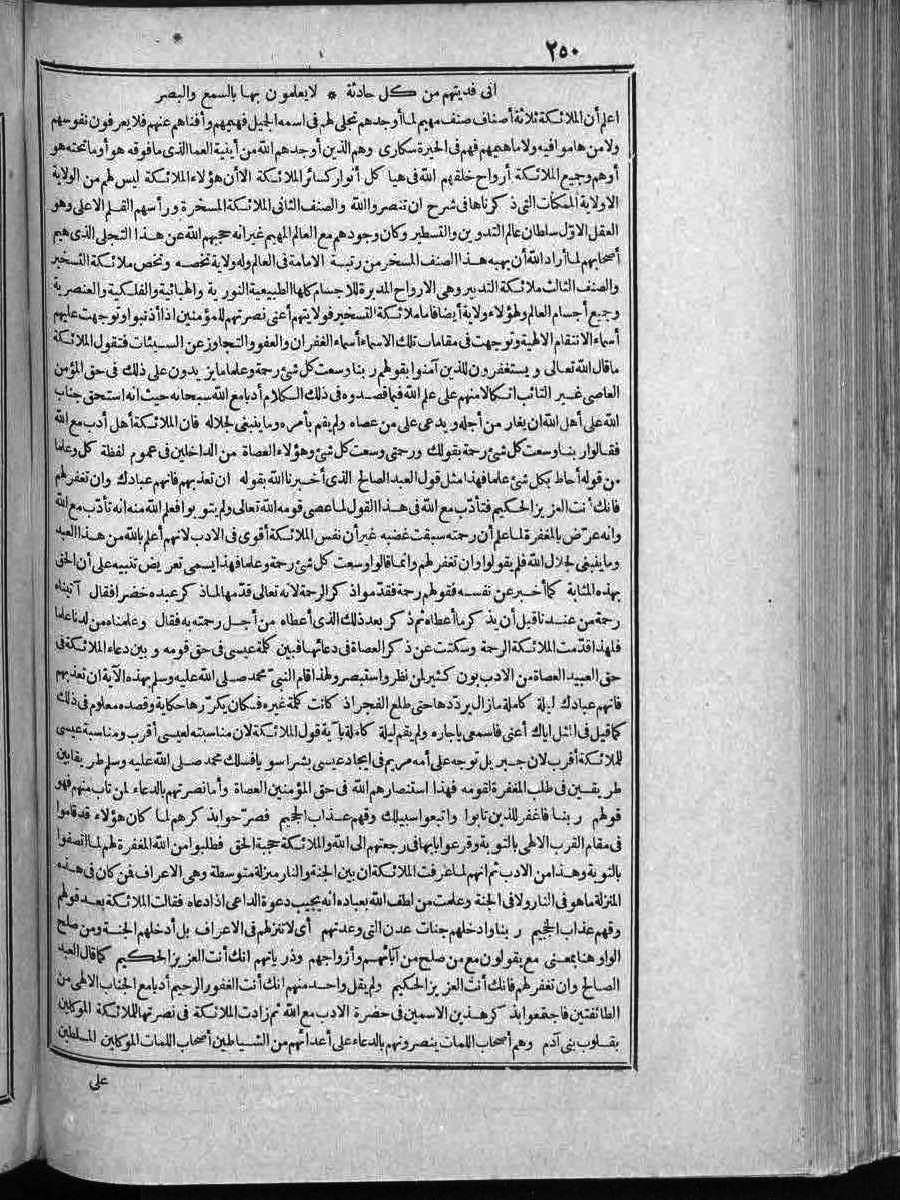 ٢٥٠
انى فديتهم من كل حادثة * لا يعلمون بها بالسمع والبصر
اعلم أن الملائكة ثلاثة أصناف صنف مهيم لما أوجدهم تجلى لهم فى اسمه الجميل فهيمهم وأفناهم عنهم فلا يعرفون نفوسهم
ولا من هاموا فيه ولا ما هيمهم فهم فى الحيرة سكارى وهم الذين أوجدهم الله من أينية العما الذى ما فوقه هو أو ما تحته هو
أوهم وجميع الملائكة أرواح خلقهم الله فى هياكل أنوار كسائر الملائكة الا أن هؤلاء الملائكة ليس لهم من الولاية
الا ولاية الممكنات التى ذكرناها فى شرح ان تنصروا الله والصنف الثانى الملائكة المسخرة ورأسهم القلم الاعلى وهو
العقل الاول سلطان عالم التدوين والتسطير وكان وجودهم مع العالم المهيم غير انه حجبهم الله عن هذا التجلى الذى هيم
أصحابهم لما أراد الله أن يهبه هذا الصنف المسخر من رتبة الامامة فى العالم وله ولاية تخصه وتخص ملائكة التسخير
والصنف الثالث ملائكة التدبير وهى الارواح المدبرة للاجسام كلها الطبيعية النورية والهبائية والفلكية والعنصرية
وجميع أجسام العالم ولهؤلاء ولاية أيضا فاما ملائكة التسخير فولايتهم أعنى نصرتهم للمؤمنين اذا أذنبوا وتوجهت عليهم
أسماء الانتقام الالهية وتوجهت فى مقامات تلك الاسماء أسماء الغفران والعفو والتجاوز عن السيئات فتقول الملائكة
ما قال الله تعالى ويستغفرون للذين آمنوا بقولهم ربنا وسعت كل شئ رحمة وعلما ما يزيدون على ذلك فى حق المؤمن
العاصى غير التائب اتكالا منهم على علم الله فيما قصدوه فى ذلك الكلام أدبا مع الله سبحانه حيث انه استحق جناب
الله على أهل الله ان يغار من أجله ويدعى على من عصاه ولم يقم بأمره وما ينبغى لجلاله فان الملائكة أهل أدب مع الله
فقالوا ربنا وسعت كل شئ رحمة بقولك ورحمتى وسعت كل شئ وهؤلاء العصاة من الداخلين فى عموم لفظة كل وعلما
من قوله أحاط بكل شئ علما فهذا مثل قول العبد الصالح الذى أخبرنا الله بقوله ان تعذبهم فانهم عبادك وان تغفر لهم
فانك أنت العزيز الحكيم فتأدب مع الله فى هذا القول لما عصى قومه الله تعالى ولم يتوبوا فعلم الله منه انه تأدب مع الله
وانه عرض بالمغفرة لما علم أن رحمته سبقت غضبه غير أن نفس الملائكة أقوى فى الادب لانهم أعلم بالله من هذا العبد
وما ينبغى لجلال الله فلم يقولوا وان تغفر لهم وانما قالوا وسعت كل شئ رحمة وعلما فهذا يسمى تعريض تنبيه على أن الحق
بهذه المثابة كما أخبر عن نفسه فقولهم رحمة فقدموا ذكر الرحمة لانه تعالى قدمها لما ذكر عبده خضرا فقال آتيناه
رحمة من عندنا قبل أن يذكر ما أعطاه ثم ذكر بعد ذلك الذى أعطاه من أجل رحمته به فقال وعلمناه من لدنا علما
فلهذا قدمت الملائكة الرحمة وسكتت عن ذكر العصاة فى دعائها فبين كلمة عيسى فى حق قومه وبين دعاء الملائكة فى
حق العبيد العصاة من الادب بون كثير لمن نظر واستبصر ولهذا قام النبى محمد صلى الله عليه وسلم بهذه الآية ان تعذبهم
فانهم عبادك ليلة كاملة مازال يرددها حتى طلع الفجر اذ كانت كلمة غيره فكان يكررها حكاية وقصده معلوم فى ذلك
كما قيل فى المثل اياك أعنى فاسمعى يا جاره ولم يقم ليلة كاملة بآية قول الملائكة لان مناسبته لعيسى أقرب ومناسبة عيسى
للملائكة أقرب لان جبريل توجه على أمه مريم فى ايجاد عيسى بشرا سويا فسلك محمد صلى الله عليه وسلم طريقا بين
طريقين فى طلب المغفرة لقومه فهذا استنصارهم الله فى حق المؤمنين العصاة وأما نصرتهم بالدعاء لمن تاب منهم فهو
قولهم ربنا فاغفر للذين تابوا واتبعوا سبيلك وقهم عذاب الجحيم فصرحوا بذكرهم لما كان هؤلاء قد قاموا
فى مقام القرب الالهى بالتوبة وقرعوا بابها فى رجعتهم الى الله والملائكة حجبة الحق فطلبوا من الله المغفرة لهم لما اتصفوا
بالتوبة وهذا من الادب ثم انهم لما عرفت الملائكة ان بين الجنة والنار منزلة متوسطة وهى الاعراف فمن كان فى هذه
المنزلة ما هو فى النار ولا فى الجنة وعلمت من لطف الله بعباده انه يجيب دعوة الداعى اذا دعاه فقالت الملائكة بعد قولهم
وقهم عذاب الجحيم ربنا وادخلهم جنات عدن التى وعدتهم أى لا تنزلهم فى الاعراف بل أدخلهم الجنة ومن صلح
الواو هنا بمعنى مع يقولون مع من صلح من آبائهم وأزواجهم وذرياتهم انك أنت العزيز الحكيم كما قال العبد
الصالح وان تغفر لهم فانك أنت العزيز الحكيم ولم يقل واحد منهم انك أنت الغفور الرحيم أدبا مع الجناب الالهى من
الطائفتين فاجتمعوا بذكر هذين الاسمين فى حضرة الادب مع الله ثم زادت الملائكة فى نصرتها للملائكة الموكلين
بقلوب بنى آدم وهم أصحاب اللمات ينصرونهم بالدعاء على أعدائهم من الشياطين أصحاب اللمات الموكلين المسلطين
على